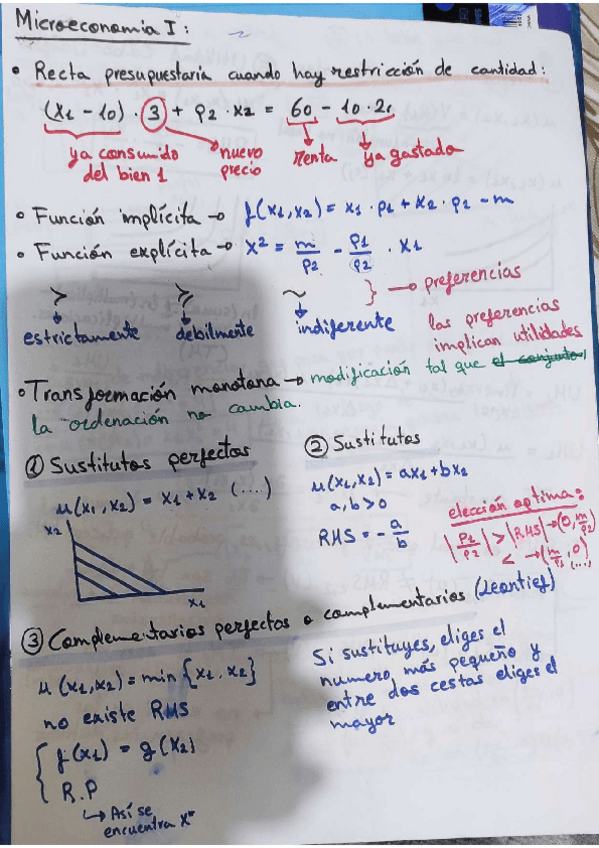 Microeconomia I:
• Recta presupuestaria cuando hay restricción de cantidad:
(x1 - 10) · 3 + p2 · x2 = 60 - 10 · 2
ya consumido del bien 1
nuevo precio
renta
ya gastada
• Función implícita → f(x1,x2) = x1 · p1 + x2 · p2 - m
• Función explícita → x² = m/p2 - p1/p2 · x1
≻ ≽ ~ } → preferencias
estrictamente debilmente indiferente
las preferencias
implican utilidades
• Transformación monotona → modificación tal que el conjunto,
la ordenación no cambia.
① Sustitutos perfectos
u(x1,x2) = x1 + x2 (...)
x2
x1
② Sustitutos
u(x1,x2) = ax1 + bx2
a, b > 0
RMS = - a/b
elección optima:
|p1/p2| > |RMS| → (0, m/p2)
< → (m/p1, 0)
(...)
③ Complementarios perfectos o complementarios (Leontief)
u(x1,x2) = min {x1, x2}
no existe RMS
{ f(x1) = g(x2)
R.P
↳ Así se
encuentra x*
Si sustituyes, eliges el
numero más pequeño y
entre dos cestas eliges el
mayor